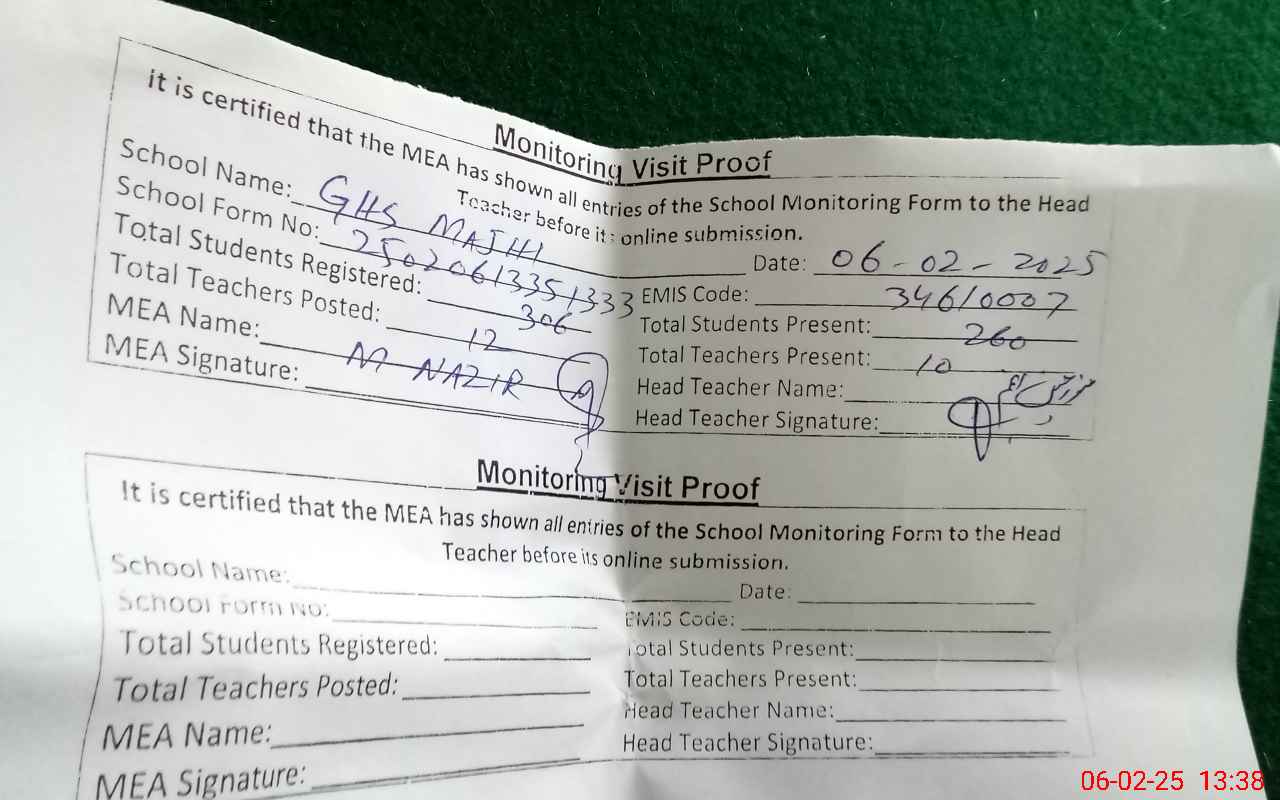 Monitoring Visit Proof
it is certified that the MEA has shown all entries of the School Monitoring Form to the Head
Teacher before its online submission.
School Name: GHS MAJHI Date: 06-02-2025
School Form No: 25020613351333 EMIS Code: 34610007
Total Students Registered: 306 Total Students Present: 260
Total Teachers Posted: 12 Total Teachers Present: 10
MEA Name: M NAZIR Head Teacher Name:
MEA Signature: Head Teacher Signature:
Monitoring Visit Proof
It is certified that the MEA has shown all entries of the School Monitoring Form to the Head
Teacher before its online submission.
School Name: Date:
School Form No: EMIS Code:
Total Students Registered: Total Students Present:
Total Teachers Posted: Total Teachers Present:
MEA Name: Head Teacher Name:
MEA Signature: Head Teacher Signature:
06-02-25 13:38